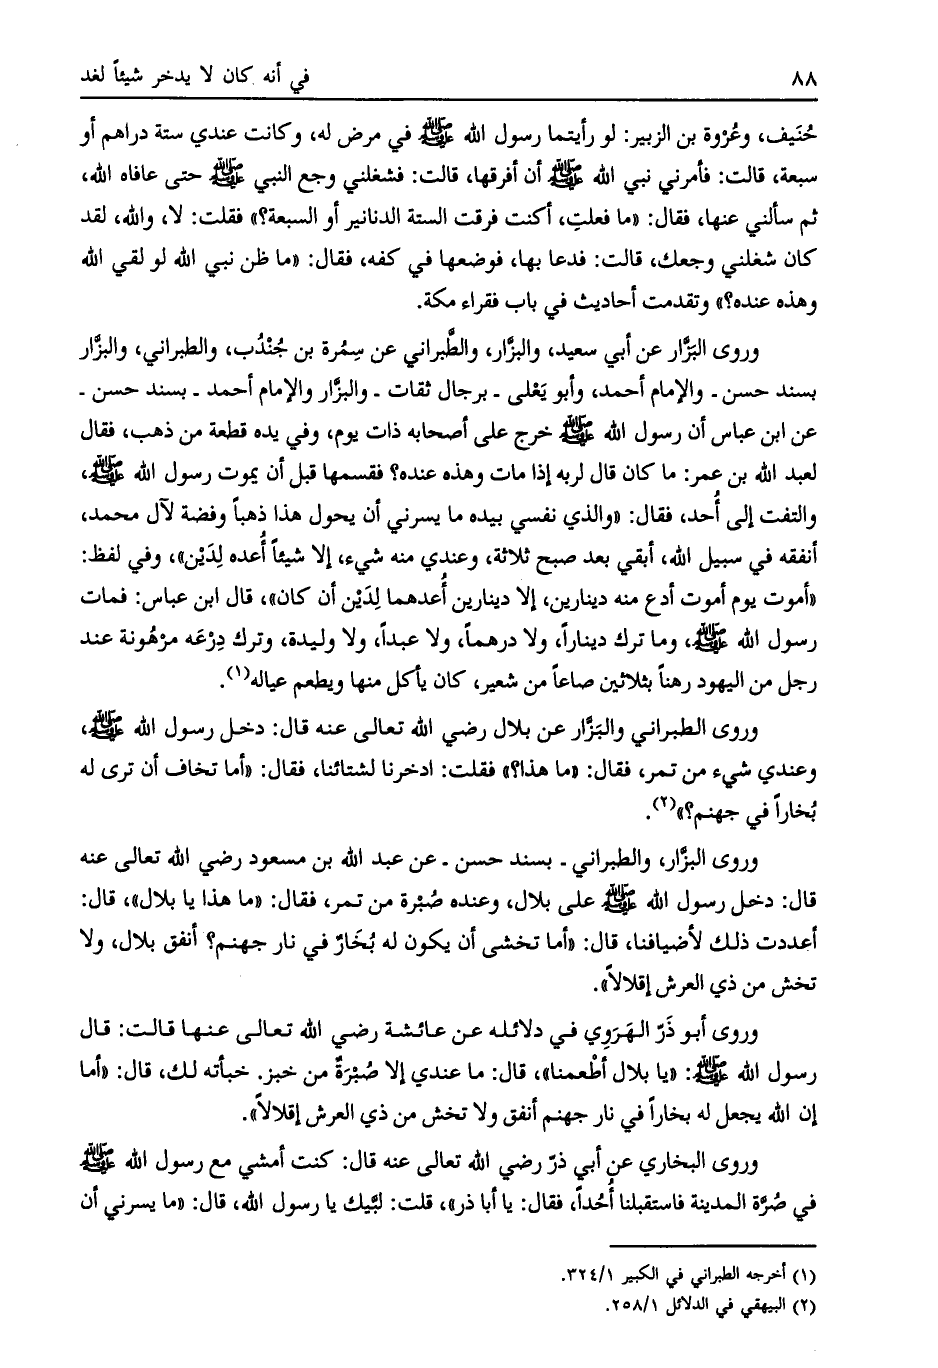 ٨٨
في أنه كان لا يدخر شيئاً لغد
حُنَيف، وعُرْوة بن الزبير: لو رأيتما رسول الله ﷺ في مرض له، وكانت عندي ستة دراهم أو
سبعة، قالت: فأمرني نبي الله ﷺ أن أفرقها، قالت: فشغلني وجع النبي ﷺ حتى عافاه الله،
ثم سألني عنها، فقال: «ما فعلتِ، أكنت فرقت الستة الدنانير أو السبعة؟» فقلت: لا، والله، لقد
كان شغلني وجعك، قالت: فدعا بها، فوضعها في كفه، فقال: «ما ظن نبي الله لو لقي الله
وهذه عنده؟» وتقدمت أحاديث في باب فقراء مكة.
وروى البَزَّار عن أبي سعيد، والبزَّار، والطَّبراني عن سِمُرة بن جُنْدُب، والطبراني، والبزَّار
بسند حسن ـ والإمام أحمد، وأبو يَعْلى ـ برجال ثقات ـ والبزَّار والإمام أحمد ـ بسند حسن ـ
عن ابن عباس أن رسول الله ﷺ خرج على أصحابه ذات يوم، وفي يده قطعة من ذهب، فقال
لعبد الله بن عمر: ما كان قال لربه إذا مات وهذه عنده؟ فقسمها قبل أن يموت رسول الله ﷺ،
والتفت إلى أُحد، فقال: «والذي نفسي بيده ما يسرني أن يحول هذا ذهباً وفضة لآل محمد،
أنفقه في سبيل الله، أبقي بعد صبح ثلاثة، وعندي منه شيء، إلا شيئاً أُعده لِدَيْن»، وفي لفظ:
«أموت يوم أموت أدع منه دينارين، إلا دينارين أُعدهما لِدَيْن أن كان»، قال ابن عباس: فمات
رسول الله ﷺ، وما ترك ديناراً، ولا درهماً، ولا عبداً، ولا وليدة، وترك دِرْعَه مرْهُونة عند
رجل من اليهود رهناً بثلاثين صاعاً من شعير، كان يأكل منها ويطعم عياله(١).
وروى الطبراني والبَزَّار عن بلال رضي الله تعالى عنه قال: دخل رسول الله ﷺ،
وعندي شيء من تمر، فقال: «ما هذا؟» فقلت: ادخرنا لشتائنا، فقال: «أما تخاف أن ترى له
بُخاراً في جهنم؟»(٢).
وروى البزَّار، والطبراني ـ بسند حسن ـ عن عبد الله بن مسعود رضي الله تعالى عنه
قال: دخل رسول الله ﷺ على بلال، وعنده صُبْرة من تمر، فقال: «ما هذا يا بلال»، قال:
أعددت ذلك لأضيافنا، قال: «أما تخشى أن يكون له بُخَارٌ في نار جهنم؟ أنفق بلال، ولا
تخش من ذي العرش إقلالاً».
وروى أبو ذَرّ الهَرَوِي في دلائله عن عائشة رضي الله تعالى عنها قالت: قال
رسول الله ﷺ: «يا بلال أطْعمنا»، قال: ما عندي إلا صُبْرَةٌ من خبز. خبأته لك، قال: «أما
إن الله يجعل له بخاراً في نار جهنم أنفق ولا تخش من ذي العرش إقلالاً».
وروى البخاري عن أبي ذرّ رضي الله تعالى عنه قال: كنت أمشي مع رسول الله ﷺ
في صُرَّة المدينة فاستقبلنا أُحُداً، فقال: يا أبا ذر»، قلت: لبَّيك يا رسول الله، قال: «ما يسرني أن
(١) أخرجه الطبراني في الكبير ٣٢٤/١.
(٢) البيهقي في الدلائل ٢٥٨/١.